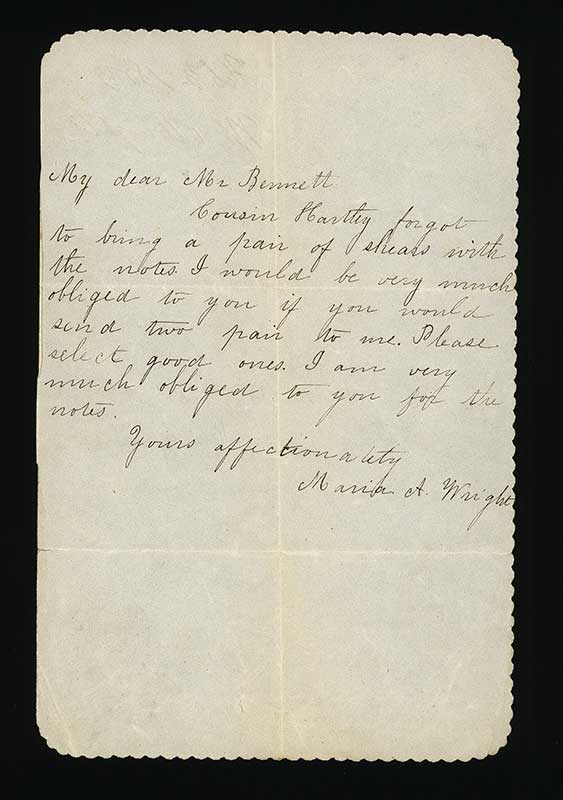 My dear Mr Bennett
Cousin Hartley forgot
to bring a pair of shears with
the notes. I would be very much
obliged to you if you would
send two pair to me. Please
select good ones. I am very
much obliged to you for the
notes.
Yours affectionately
Maria A. Wright